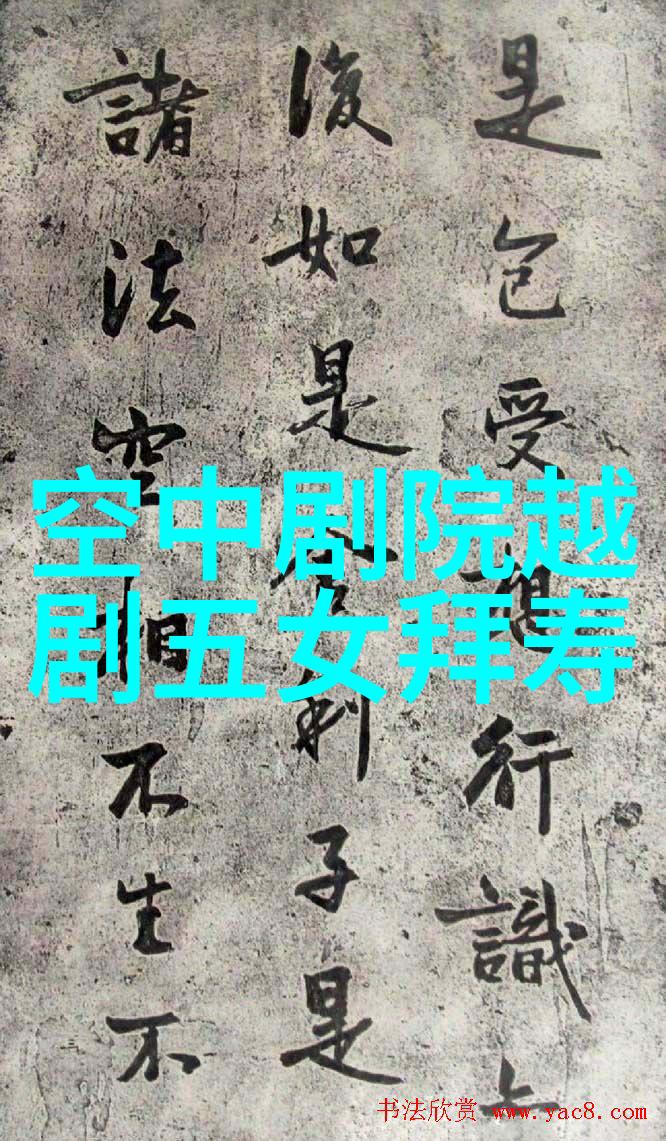 是色受想行識
復如是舍利子是
諸法空相不生不
空中剧院越
剧五女拜寿
书法欣赏 www.yac8.com